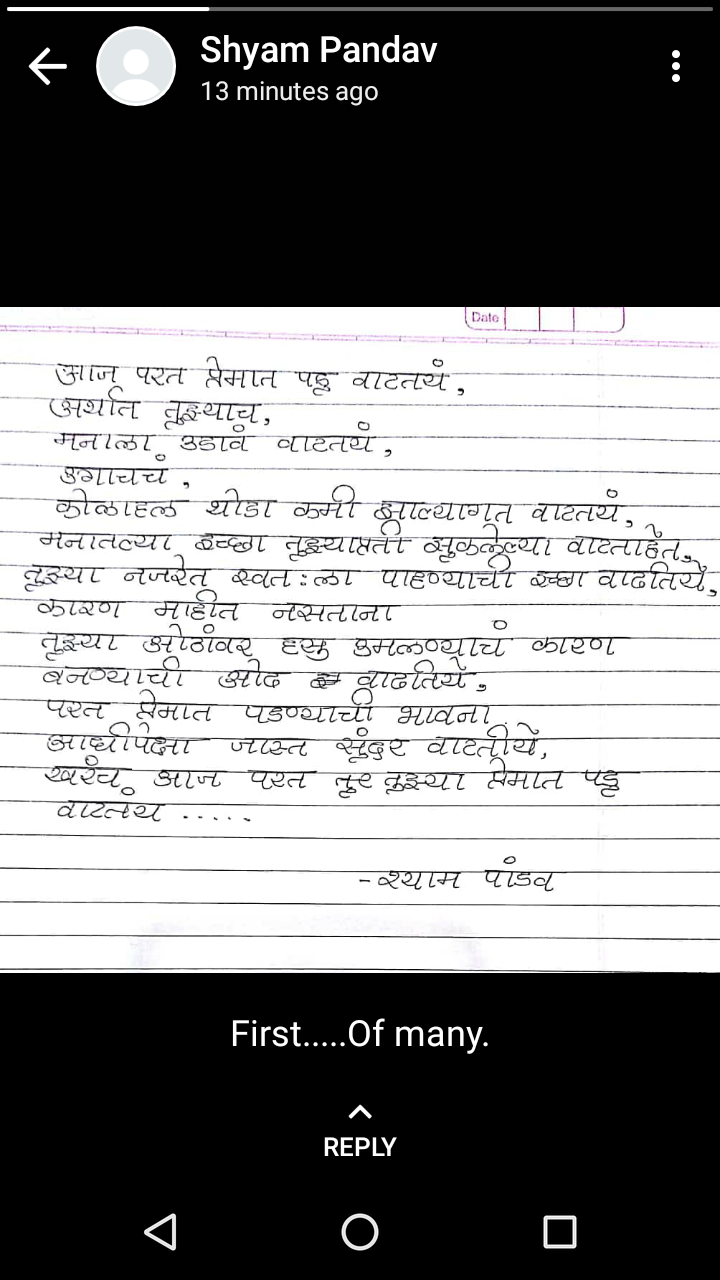 Shyam Pandav
13 minutes ago
Date
आज परत प्रेमात पडू वाटतयं,
अर्थात तूझ्याच,
मनाला उडावं वाटतयं,
उगाचचं,
कोळाहल थोडा कमी झाल्यागत वाटतयं,
मनातल्या इच्छा तूझ्याप्रती सूकलेल्या वाटताहेत,
तूझ्या नजरेत स्वत:ला पाहण्याची इच्छा वाढतिये,
कारण माहीत नसताना
तूझ्या ओठांवर हसू उमलण्याचं कारण
बनण्याची ओढ वाढतिये,
परत प्रेमात पडण्याची भावना
आधीपेक्षा जास्त सूंदर वाटतीये,
खरंच, आज परत तूझ्या प्रेमात पडू
वाटतंय .....
- श्याम पांडव
First.....Of many.
REPLY